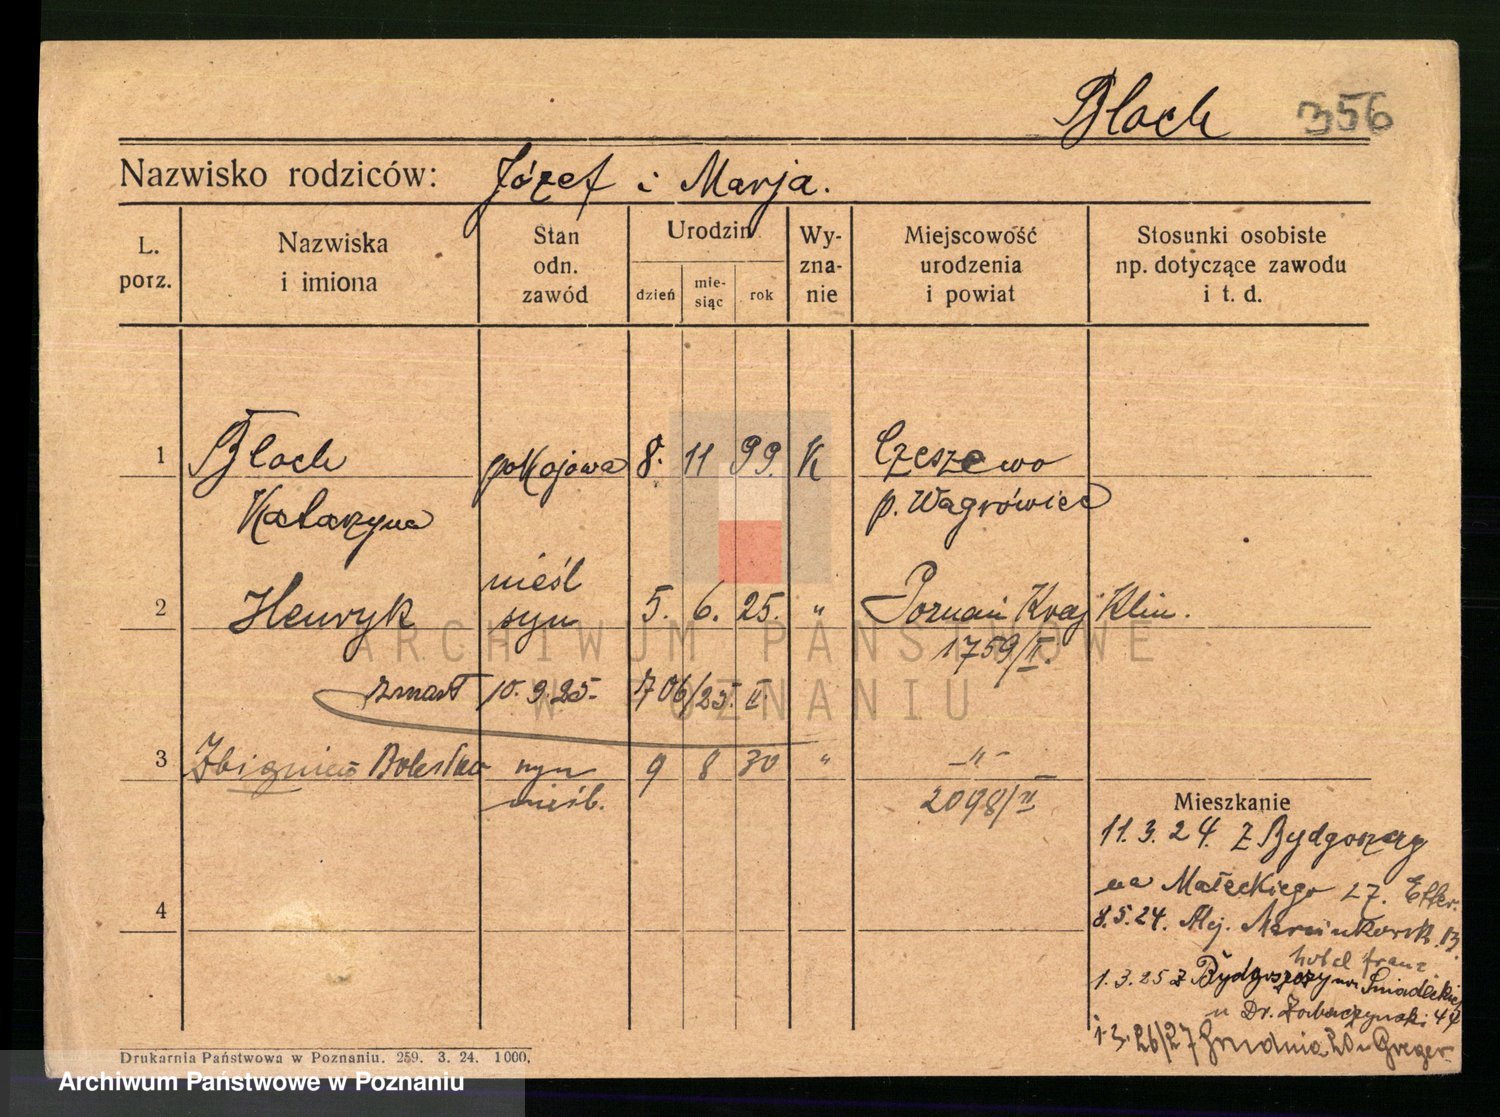 Bloch 356
Nazwisko rodziców: Józef i Marja.
L. porz.
Nazwiska i imiona
Stan odn. zawód
Urodzin
dzień
mie-siąc
rok
Wy-zna-nie
Miejscowość urodzenia i powiat
Stosunki osobiste np. dotyczące zawodu i t. d.
1 Bloch pokojowa 8. 11 99. K Czeszewo
Katarzyna p. Wągrówiec
nieśl
2 Henryk syn 5. 6. 25. „ Poznań Kraj Klin.
1759/II.
zmarł 10. 9. 25. 706/25. II.
3 Zbigniew Bolesław syn 9 8 30 „ -„-
nieśl. 2098/II
Mieszkanie
11. 3. 24. z Bydgoszczy
na Małeckiego 27.
4
8. 5. 24. Alej. Marcinkowsk. 13.
hotel franc.
1. 3. 25 z Bydgoszczy na Śniadeckiej
u Dr.
1. 3. 26/27 Grudnia 20
Drukarnia Państwowa w Poznaniu. 259. 3. 24. 1000.
ARCHIWUM PAŃSTWOWE
W POZNANIU
Archiwum Państwowe w Poznaniu